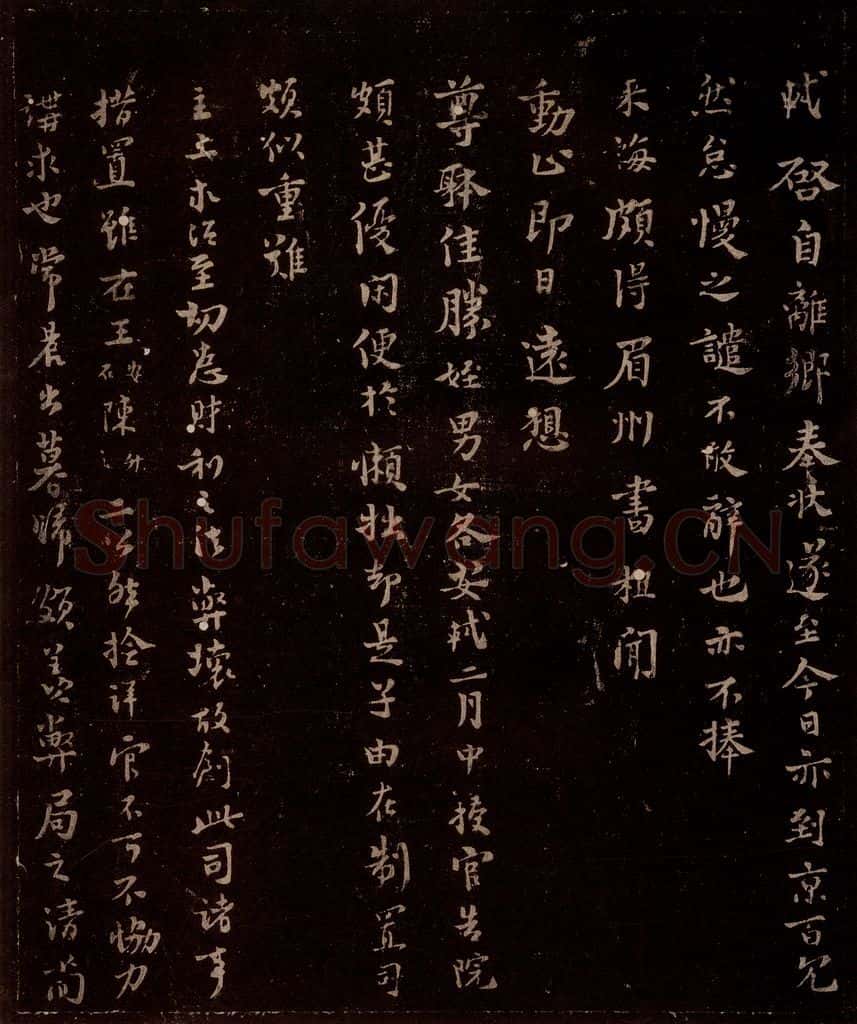 軾啓自離鄉奉狀遂至今日示到京百冗
然怠慢之譴不敢辭也亦不捧
来海頗得眉州書粗聞
動止即日遠想
尊眜佳勝姪男女各安軾二月中授官告院
頗甚優閑便於懶拙却是子由在制置司
頗似重難
主上求治至切患財利之法弊壞故創此司諸事
措置雖在王安石陳升之二公然檢詳官不可不協力
講求也常晨出暮歸頗羨弊局之清簡
Shufawang.CN